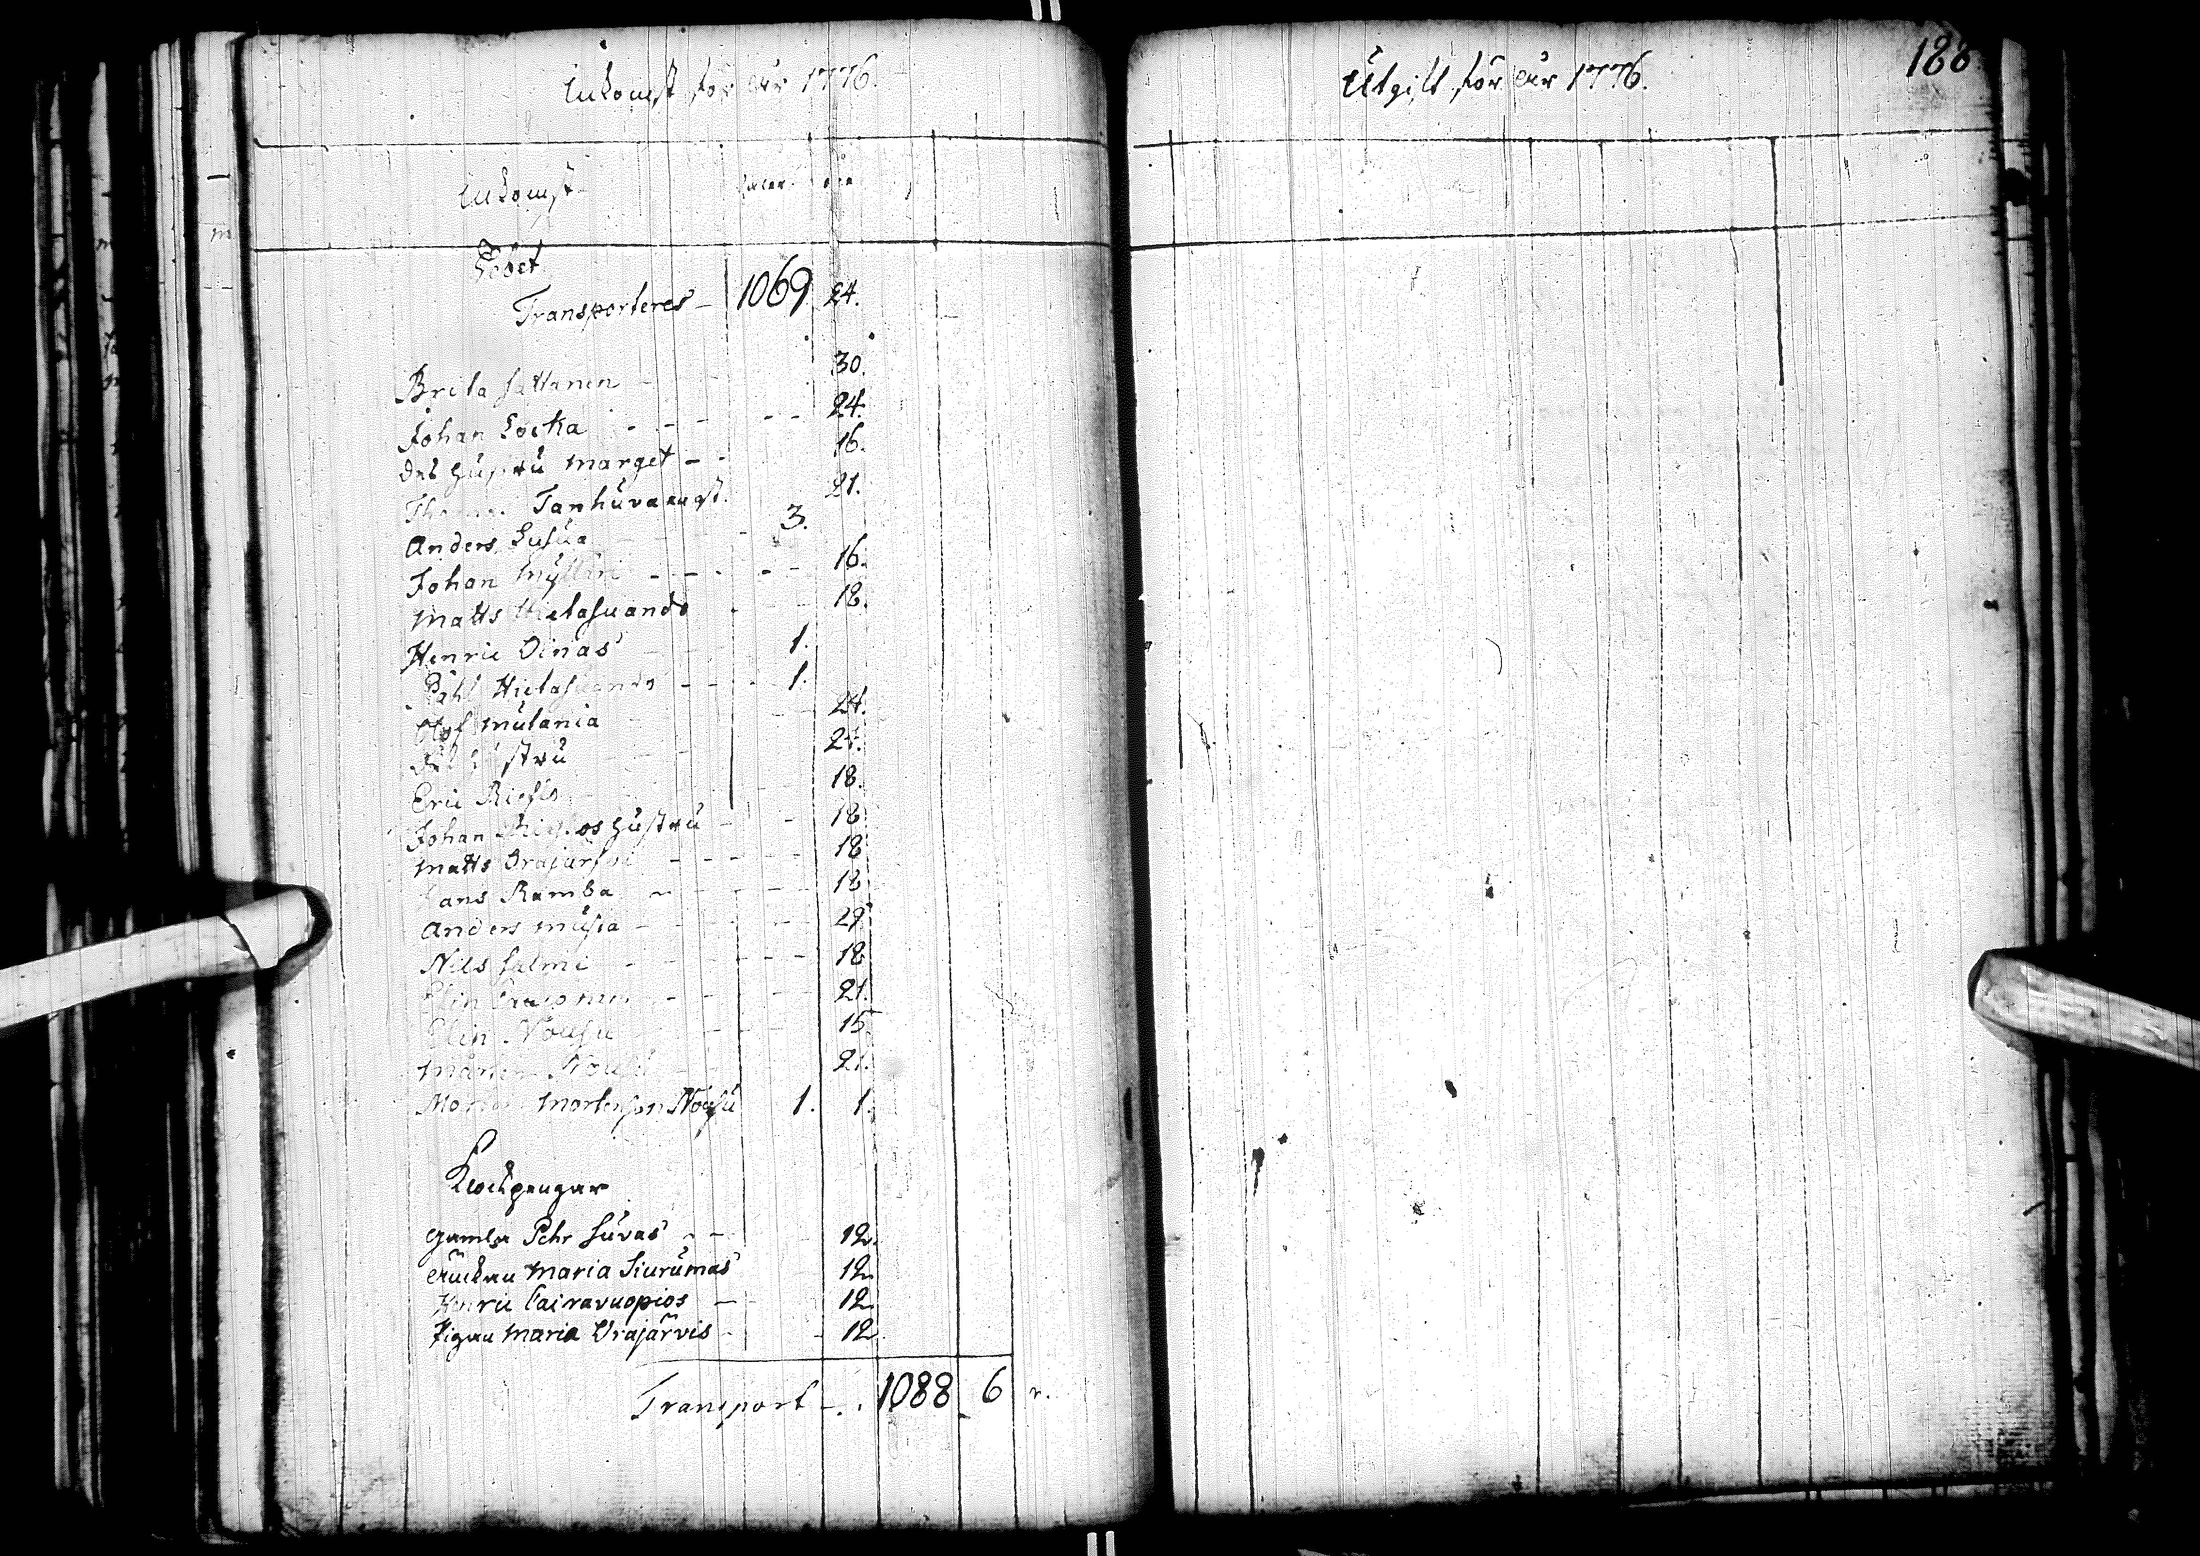 Inkomst för år 1776.
Inkomst
Debet
Transporteres 1069 24.
Brita Sattanen 30.
Johan Locka 24.
Des hustru Marget 16.
Tanhuvaara 21.
Anders Lusua 3.
Johan Myllari 16.
Matts Hietasuando 18.
Henric Oinas 1.
Påhl Hietasuando 1.
Olof Mutania 24.
Des hustru 24.
Eric 18.
Johan hustru 18
Matts Orajärfvi 18
Hans Ramba 18
Anders Musia 29.
Nils Salmi 18
Elin 21.
Elin Nousu 15
Mårten Nousu 21.
Mortenson Nousu 1. 1.
Klockpengar
Gamla Pehr Suvas 12.
Änckan Maria Siurumas 12
Henric Cairavuopios 12
Pigan Maria Orajärvis 12
Transport 1088 6
Utgift för år 1776.
188